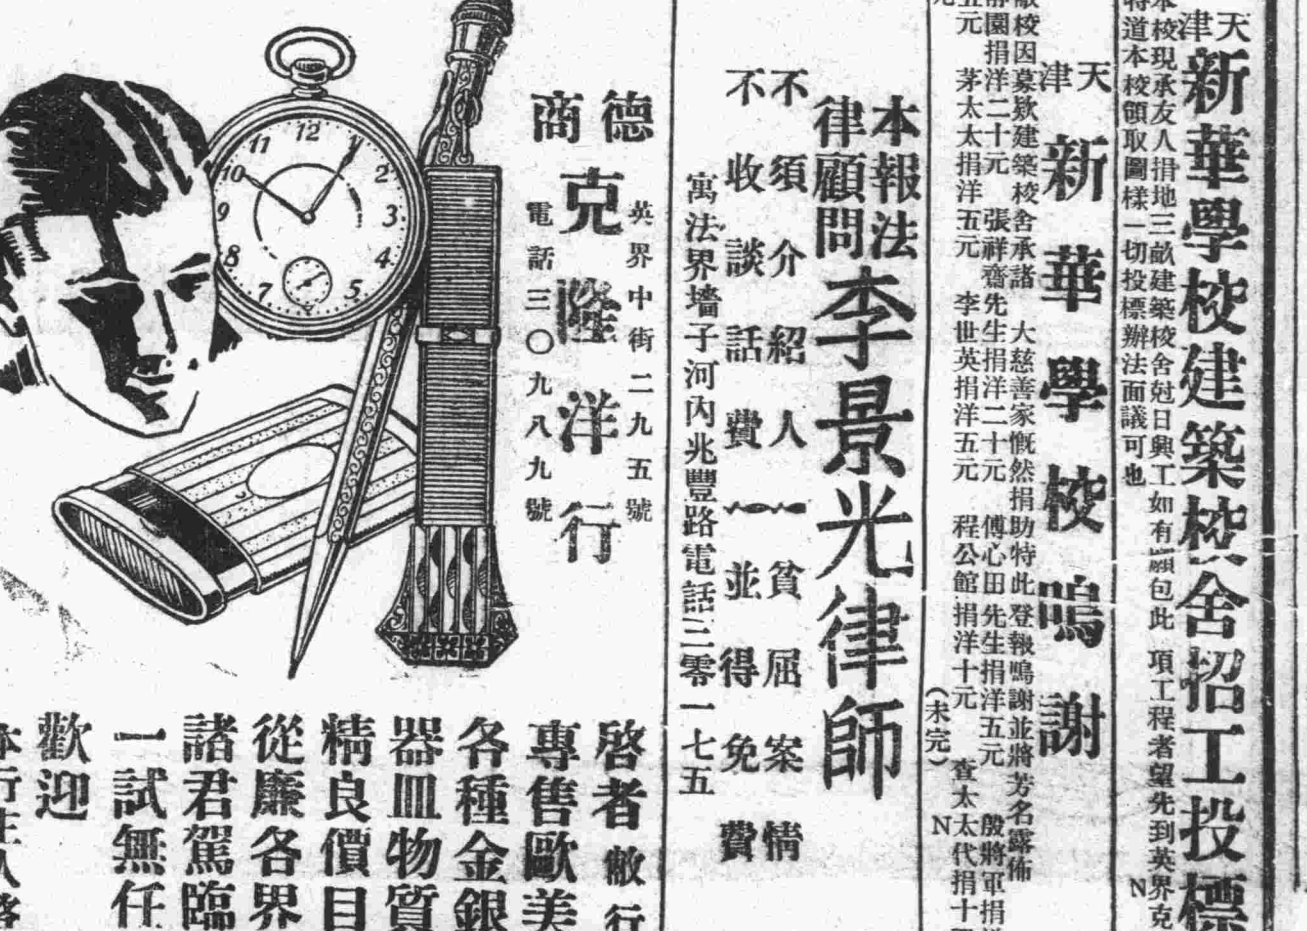 天津
新華學校建築校舍招工投標
本校現承友人捐地三畝建築校舍尅日興工如有願包此項工程者望先到英界克
特道本校領取圖樣一切投標辦法面議可也
N
天津
新華學校鳴謝
敝校因募欵建築校舍承諸大慈善家慨然捐助特此登報鳴謝並將芳名露佈
靜園捐洋二十元 張祥齋先生捐洋二十元 傅心田先生捐洋五元 殷將軍捐洋
五元 茅太太捐洋五元 李世英捐洋五元 程公館捐洋十元 查太太代捐十
(未完)
N
本報法
律顧問
李景光律師
不須介紹人 貧屈案情
不收談話費 並得免費
寓法界墻子河內兆豐路電話三零一七五
德商
克隆洋行
英界中街二九五號
電話三〇九八九號
12
1
2
3
4
5
7
8
9
10
11
啓者敝行
專售歐美
各種金銀
器皿物質
精良價目
從廉各界
諸君駕臨
一試無任
歡迎
本行主人啓